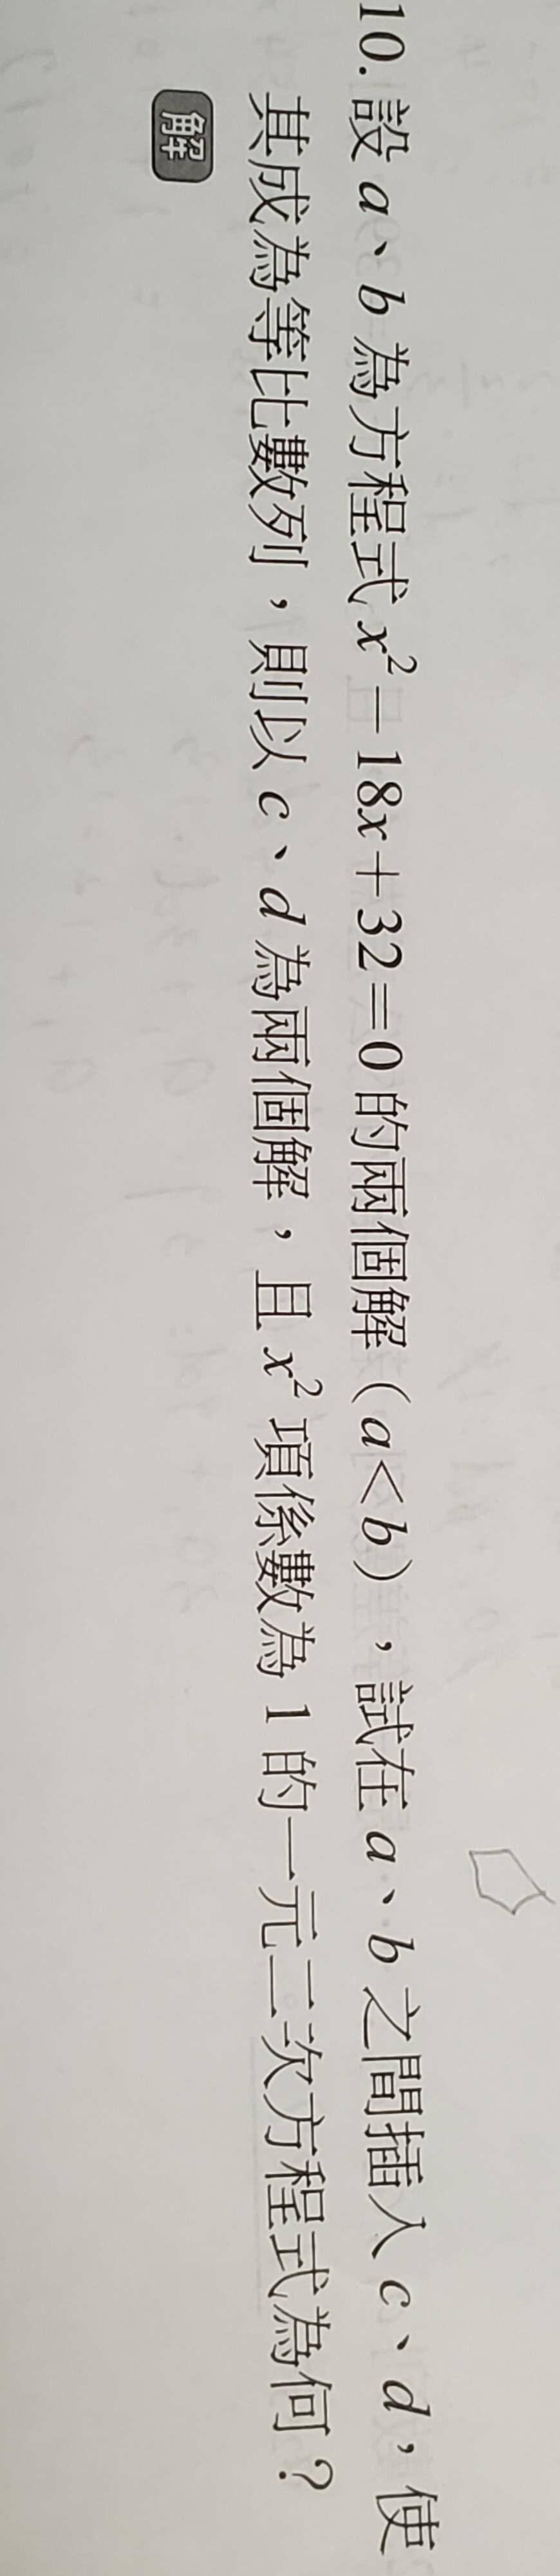 10. 設 a、b 為方程式 x²－18x＋32＝0 的兩個解（a＜b），試在 a、b 之間插入 c、d，使
其成為等比數列，則以 c、d 為兩個解，且 x² 項係數為 1 的一元二次方程式為何？
解